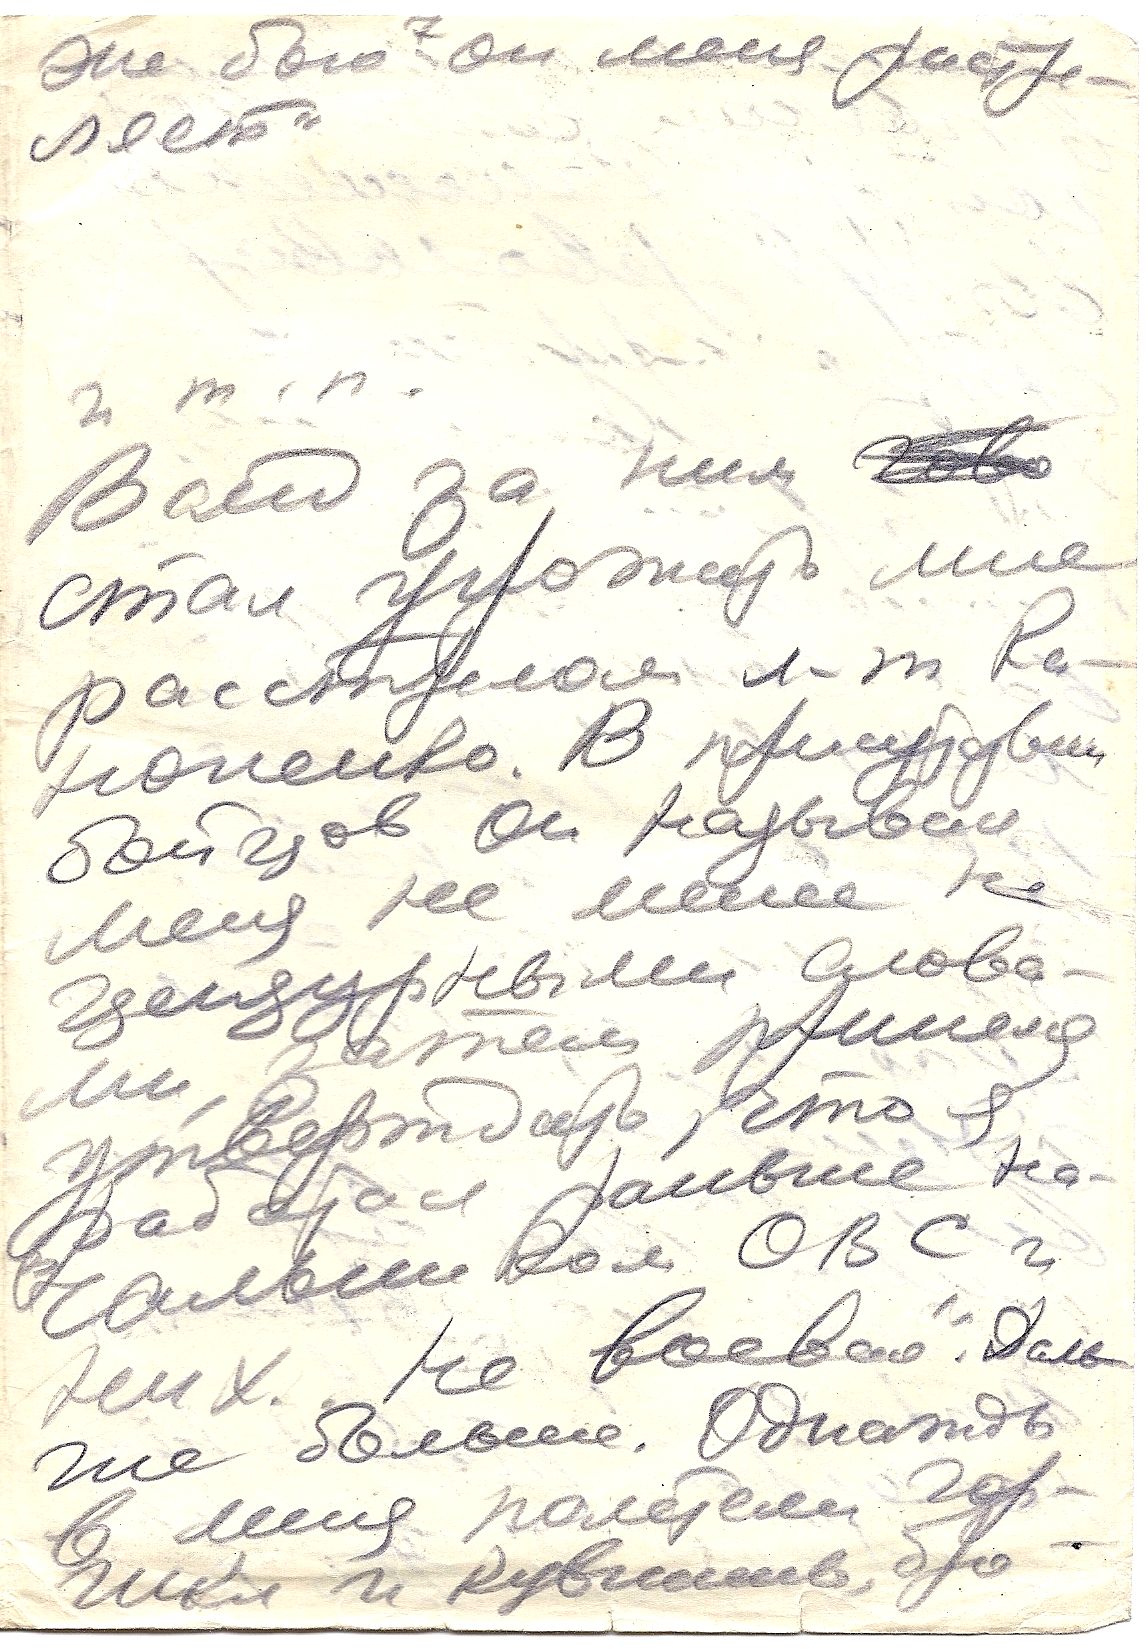 же бою он меня растре-
ляет"
и т. п.
Вслед за ним
стал угрожать мне
расстрелом л-т Ка-
нюченко. В присутствии
бойцов он называл
меня не менее не
цензурными словa-
ми, затем принялся
утверждать, что я
работал раньше на-
чальником ОВС и
них. не воевал". Даль
же больше. Однажды
в меня полетели гор-
шки и кувшины, бро-